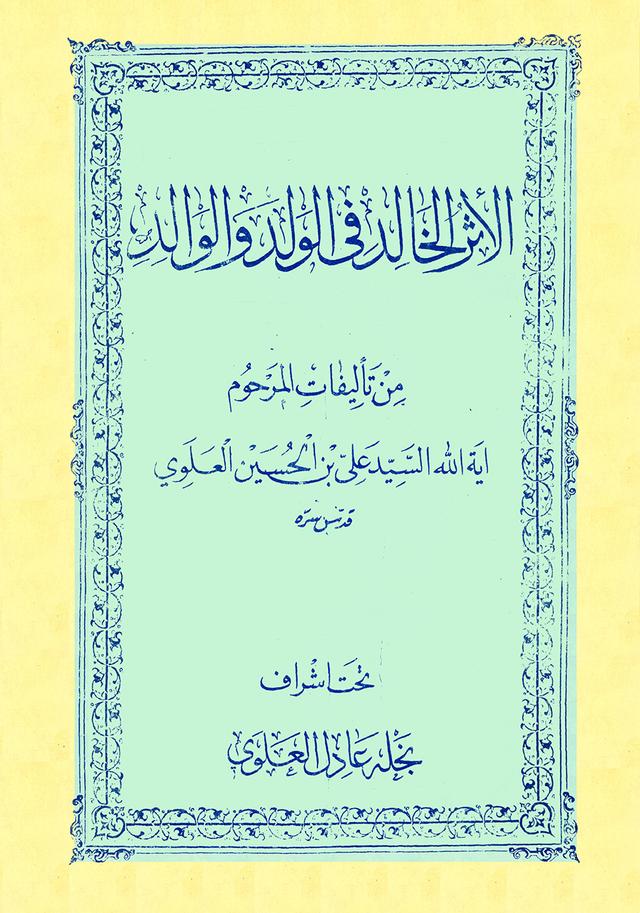 الأثَرُ الخَالِدُ فِي الوَلَدِ وَالوَالِدِ
مِنْ تَأليفَاتِ المَرْحُوم
اية الله السَّيِّد عَلِيّ بْن الْحُسَيْن الْعَلَوي
قدّس سرّه
تحتَ اشْراف
نَجْلِه عَادِل العَلَوي